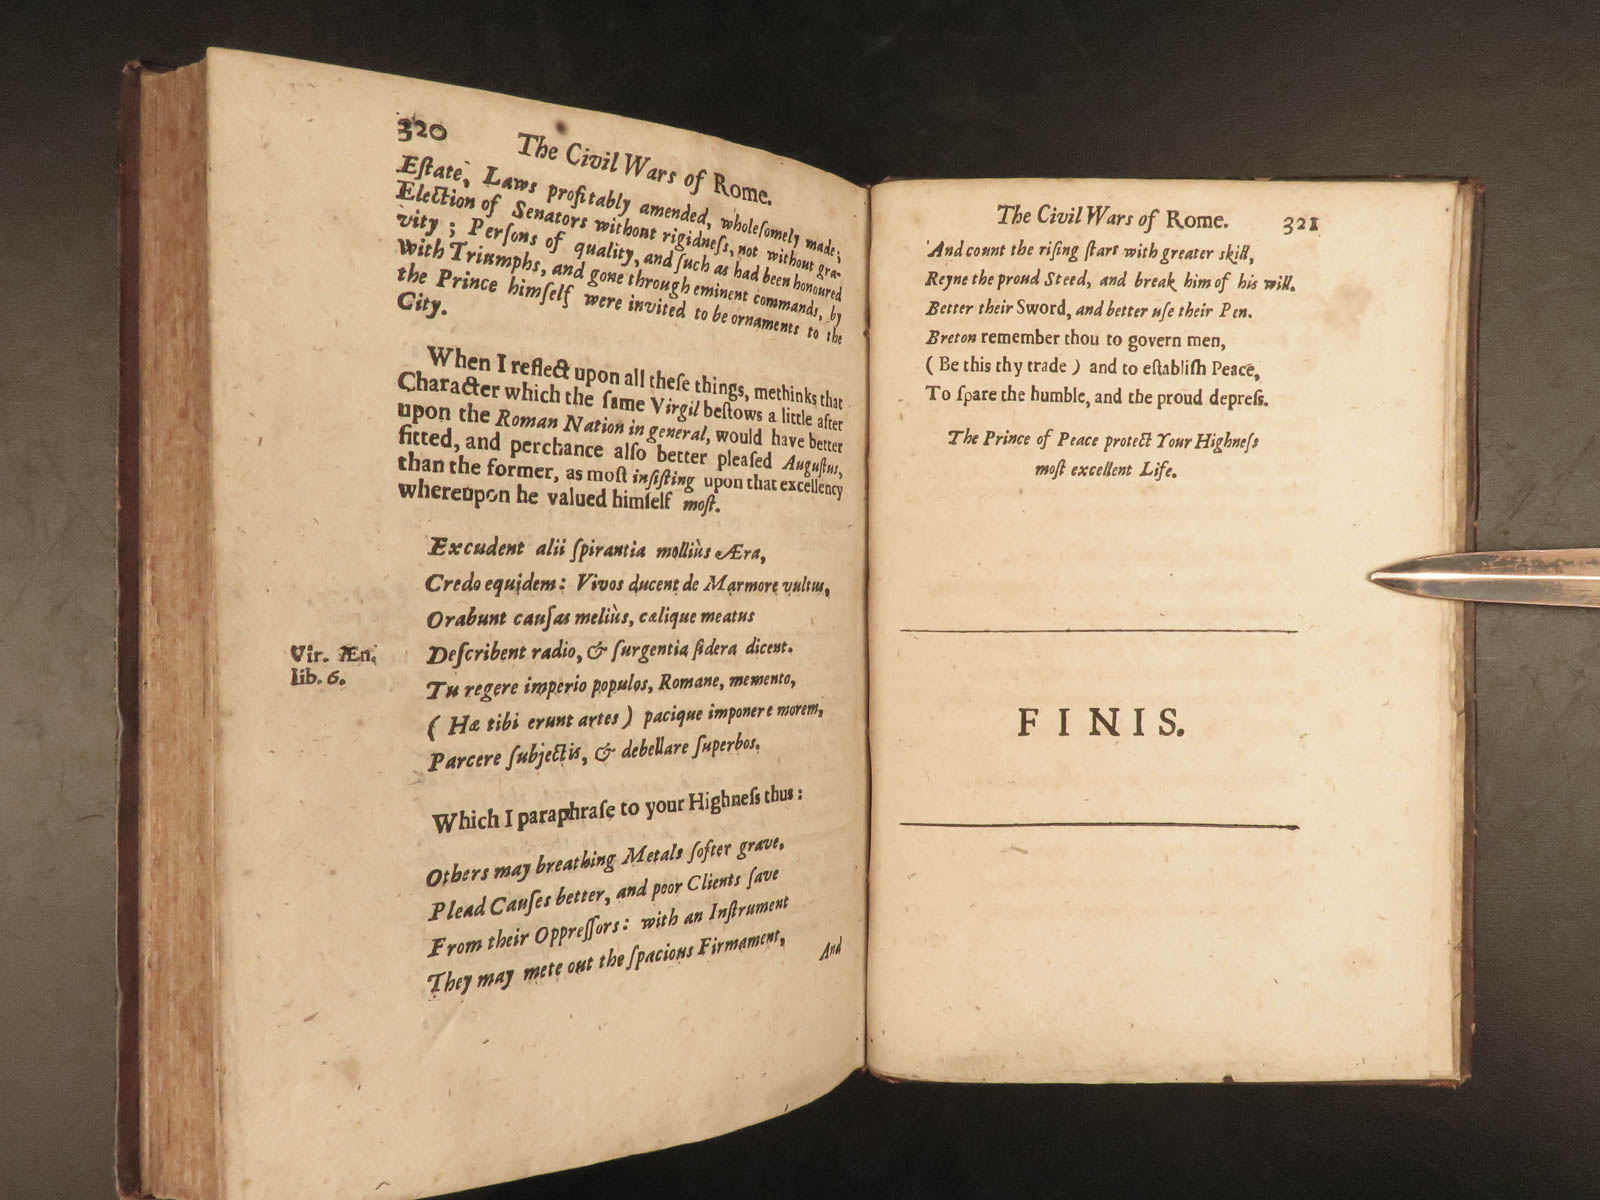 320
The Civil Wars of Rome.
Eſtate, Laws profitably amended, wholeſomely made;
Election of Senators without rigidneſs, not without gra-
vity; Perſons of quality, and ſuch as had been honoured
with Triumphs, and gone through eminent commands, by
the Prince himſelf were invited to be ornaments to the
City.
When I reflect upon all theſe things, methinks that
Character which the ſame Virgil beſtows a little after
upon the Roman Nation in general, would have better
fitted, and perchance alſo better pleaſed Auguſtus,
than the former, as moſt inſiſting upon that excellency
whereupon he valued himſelf moſt.
Excudent alii ſpirantia molliùs Æra,
Credo equidem: Vivos ducent de Marmore vultus,
Orabunt cauſas meliùs, cælique meatus
Vir. Æn.
lib. 6.
Deſcribent radio, & ſurgentia ſidera dicent.
Tu regere imperio populos, Romane, memento,
(Hæ tibi erunt artes) pacique imponere morem,
Parcere ſubjectis, & debellare ſuperbos.
Which I paraphraſe to your Highneſs thus:
Others may breathing Metals ſofter grave,
Plead Cauſes better, and poor Clients ſave
From their Oppreſſors: with an Inſtrument
They may mete out the ſpacious Firmament,
And
The Civil Wars of Rome. 321
And count the riſing ſtars with greater skill,
Reyne the proud Steed, and break him of his will.
Better their Sword, and better uſe their Pen.
Breton remember thou to govern men,
(Be this thy trade) and to eſtabliſh Peace,
To ſpare the humble, and the proud depreſs.
The Prince of Peace protect Your Highneſs
moſt excellent Life.
FINIS.